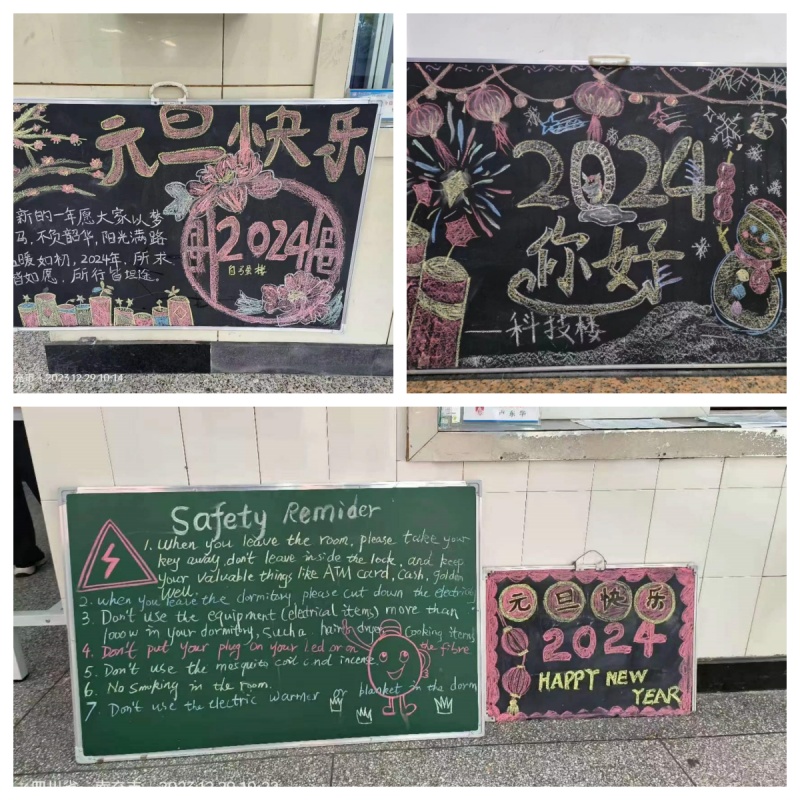 元旦快乐
新的一年愿大家以梦
马,不负韶华,阳光满路
暖如初,2024年,所求
皆如愿,所行皆坦途。
2024
自强楼
2023.12.29 10:14
2024
你好
——科技楼
Safety Remider
1. When you leave the room, please take your
key away, don't leave inside the lock, and keep
your valuable things like ATM card, cash, golden
well.
2. when you leave the dormitory please cut down the electricity
3. Don't use the equipment (eletrical items) more than
1000w in your dormitry, such a hair dryer Cooking items
4. Don't put your plug on your bed or on the fibre
5. Don't use the mosquito coil and incense
6. No smoking in the room.
7. Don't use the electric warmer or blanket in the dorm
元旦快乐
2024
HAPPY NEW
YEAR
2023.12.29 10:22